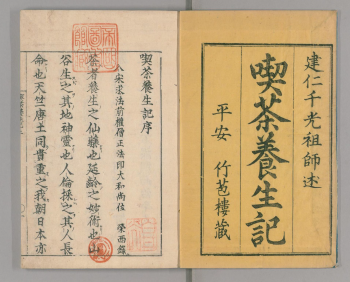 建仁千光祖師述
喫茶養生記
平安 竹苞樓藏
喫茶養生記序
入宋求法前權僧正法印大和尚位 榮西錄
茶者養生之仙藥也延齡之妙術也山
谷生之其地神靈也人倫採之其人長
命也天竺唐土同貴重之我朝日本亦